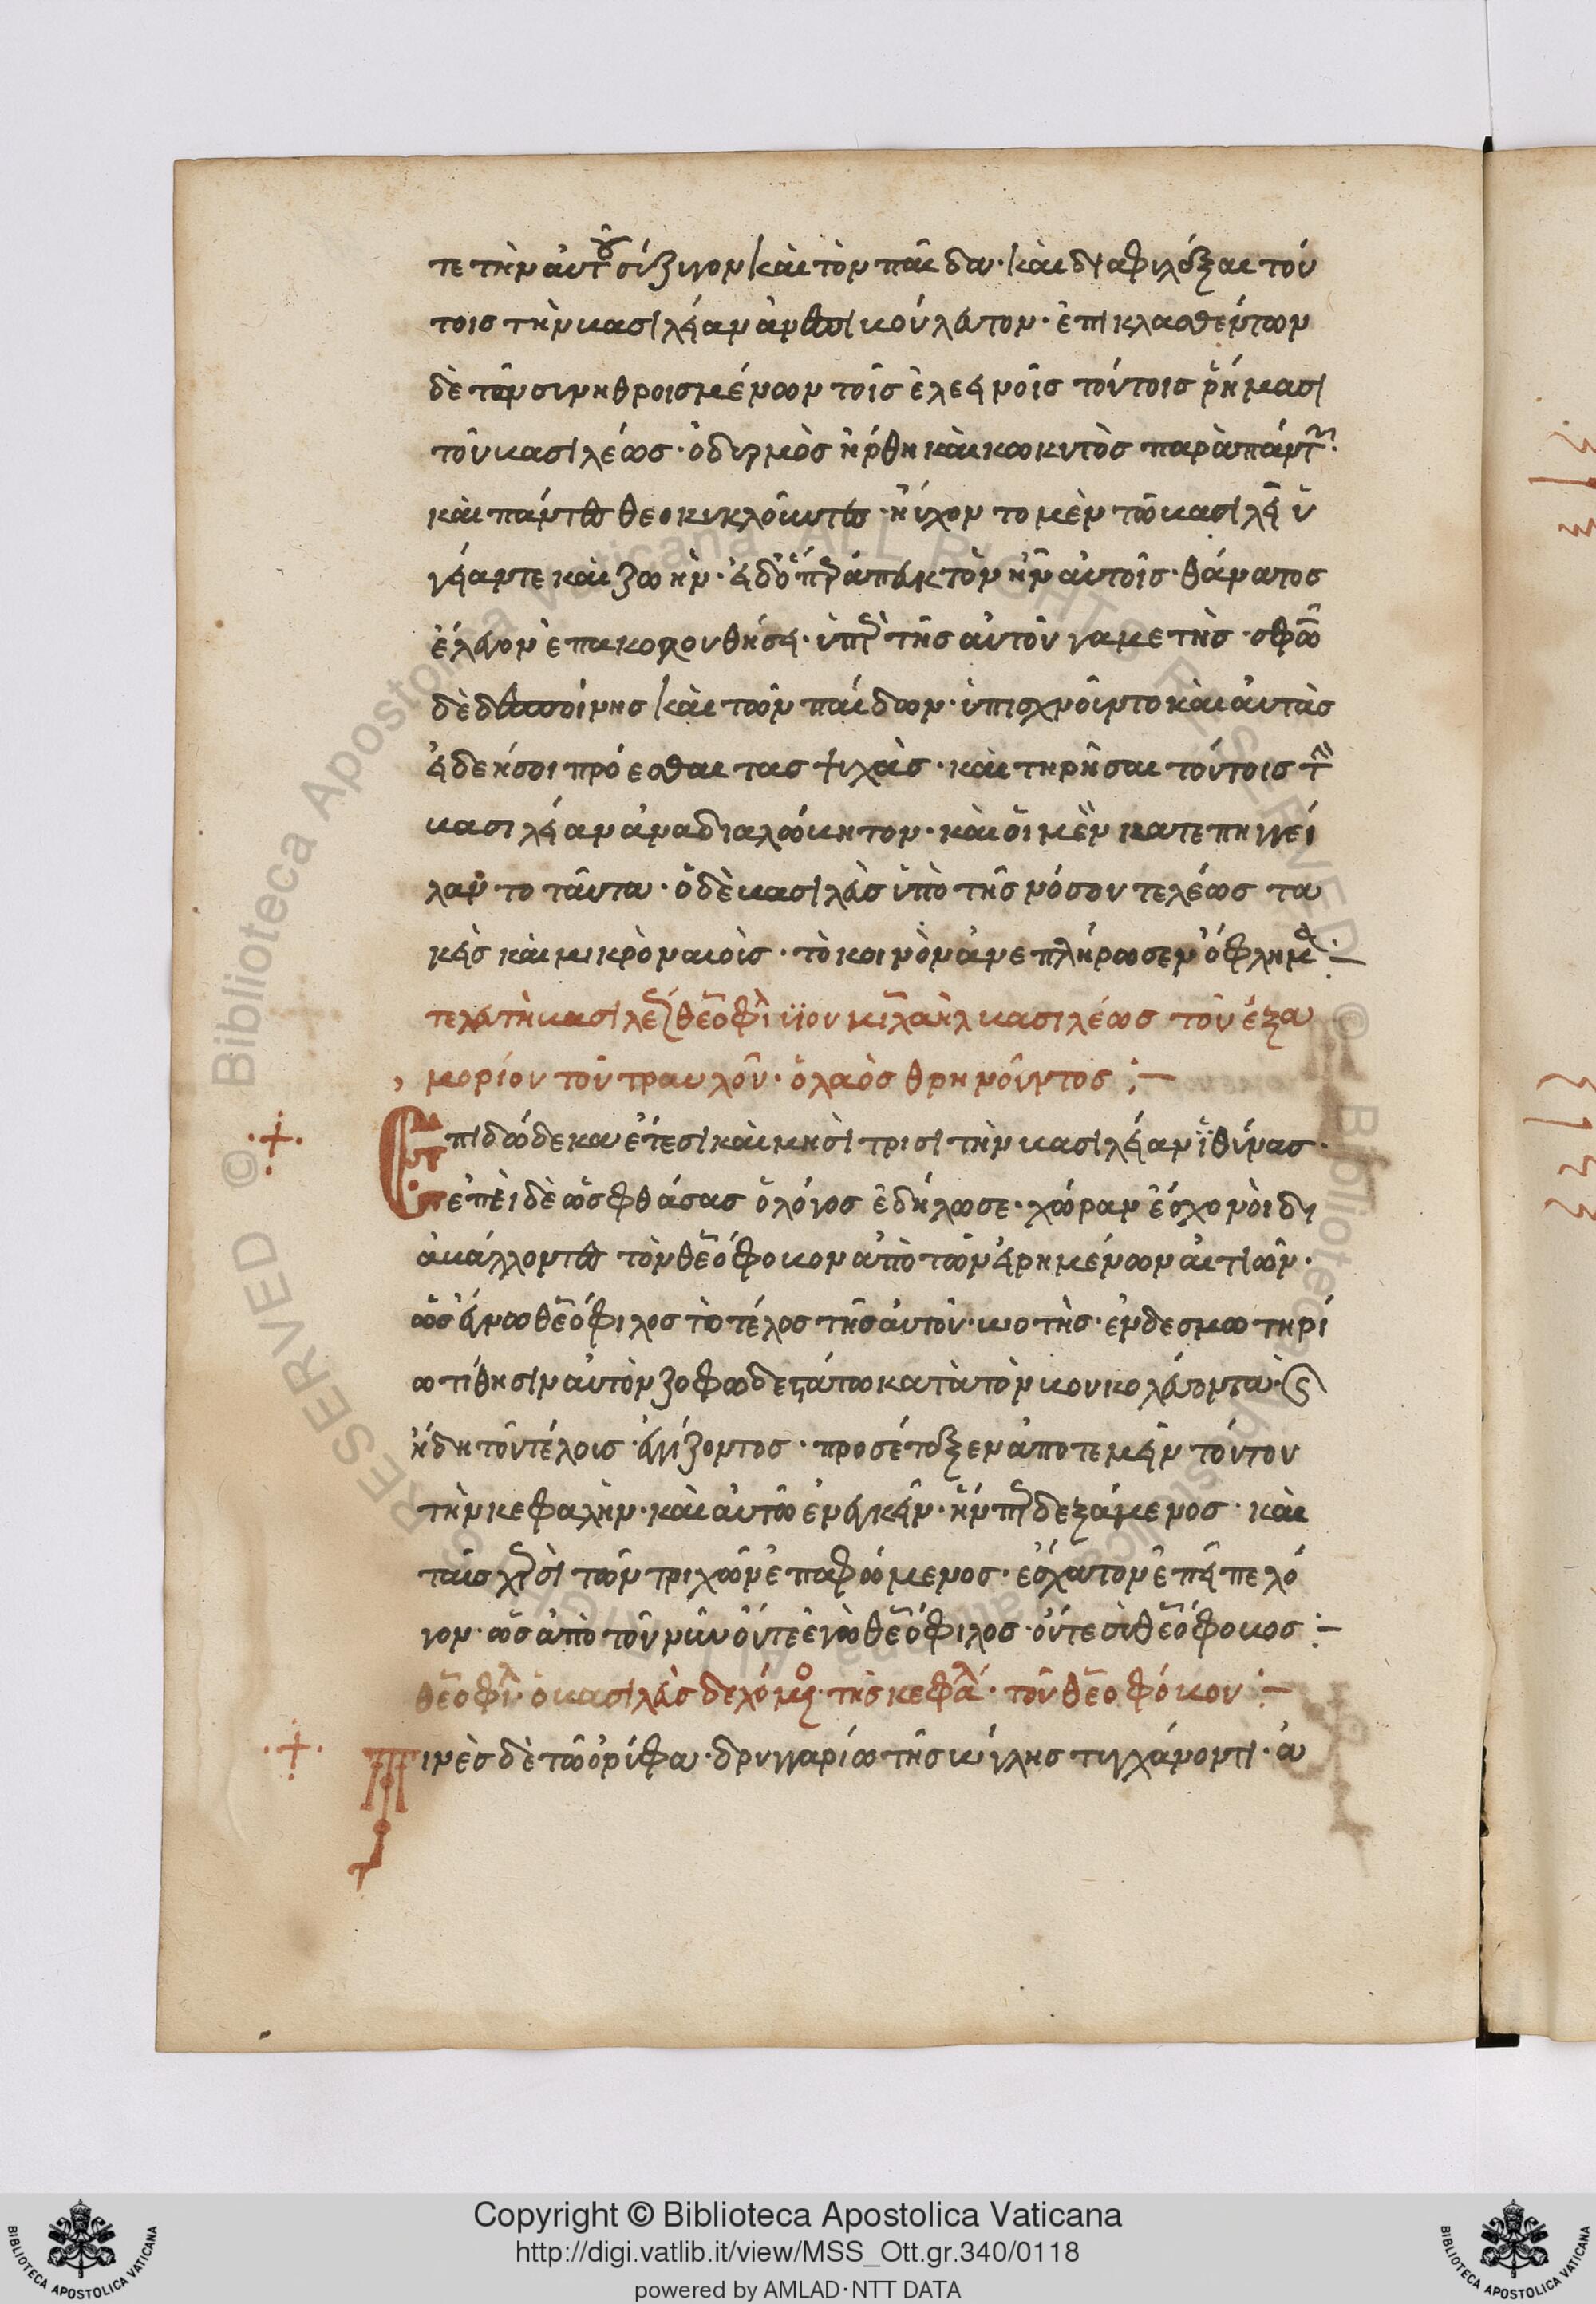 τε τὴν αὐτοῦ σύζυγον καὶ τὸν παῖδα· καὶ διαφυλάξαι τού
τοις τὴν βασιλείαν ἀνεπιβούλευτον· ἐπικλασθέντων
δὲ τῶν συνηθροισμένων τοῖς ἐλεεινοῖς τούτοις ῥήμασι
τοῦ βασιλέως· ὀδυρμὸς ἤρθη καὶ κωκυτὸς παρὰ πάντων·
καὶ πάντες θεοκυκλοῦντες· ηὔχοντο μὲν τῷ βασιλεῖ ὑ
γείαν τε καὶ ζωήν· εἰδ' ὅπερ ἀπευκτὸν ἦν αὐτοῖς· θάνατος
ἔλευον ἐπακολουθήσει· ὑπὲρ τῆς αὐτοῦ γαμετῆς· σφῶν
δὲ δεσποίνης καὶ τῶν παίδων· ὑπισχνοῦντο καὶ αὐτὰς
εἰ δεήσοι πρόεσθαι τας ψυχάς· καὶ τηρῆσαι τούτοις τὴν
βασιλείαν ἀναδιαλώβητον· καὶ οἱ μὲν κατεπηγγεί
λαντο ταῦτα· ὁ δὲ βασιλεὺς ὑπὸ τῆς νόσου τελέως τα
κεὶς καὶ μικρὸν βιοὺς· τὸ κοινὸν ἀνεπλήρωσεν ὄφλημα:–
τελευτὴ βασιλέως θεοφίλου υἱοῦ μιχαὴλ βασιλέως τοῦ ἐξα
μορίου τοῦ τραυλοῦ· ὁ λαὸς θρηνοῦντος :–
Ἐπὶ δώδεκα ἔτεσι καὶ μησὶ τρισὶ τὴν βασιλείαν ἰθύνας·
ἐπεὶ δὲ ὡς φθάσας ὁ λόγος ἐδήλωσε· χώραν ἔσχον οἱ δι
αβάλλοντες τὸν θεόφοβον ἀπὸ τῶν εἰρημένων αἰτιῶν·
ὡς ἔγνω θεόφιλος τὸ τέλος τῆς αὐτοῦ βιοτῆς· ἐν δεσμωτηρί
ω τίθησιν αὐτὸν ζοφωδεστάτω κατὰ τὸν βουκολέοντα· καὶ
ἤδη τοῦ τέλους ἐγγίζοντος· προσέταξεν ἀποτεμεῖν τούτου
τὴν κεφαλὴν· καὶ αὐτῷ ἐνεγκεῖν· ἥνπερ δεξάμενος· καὶ
ταῖς χερσὶ τῶν τριχῶν ἐπαφώμενος· ἔσχατον ἐπεῖπε λό
γον· ὡς ἀπὸ τοῦ νῦν οὔτε ἐγὼ θεόφιλος· οὔτε σὺ θεόφοβος :–
θεόφιλος ὁ βασιλεὺς δεχόμενος τὴν κεφαλὴν· τοῦ θεοφόβου :–
Τινὲς δὲ τῷ ὀρίφα· δρουγγαρίω τῆς βίγλης τυγχάνοντι· ἀ
Copyright © Biblioteca Apostolica Vaticana
http://digi.vatlib.it/view/MSS_Ott.gr.340/0118
powered by AMLAD·NTT DATA